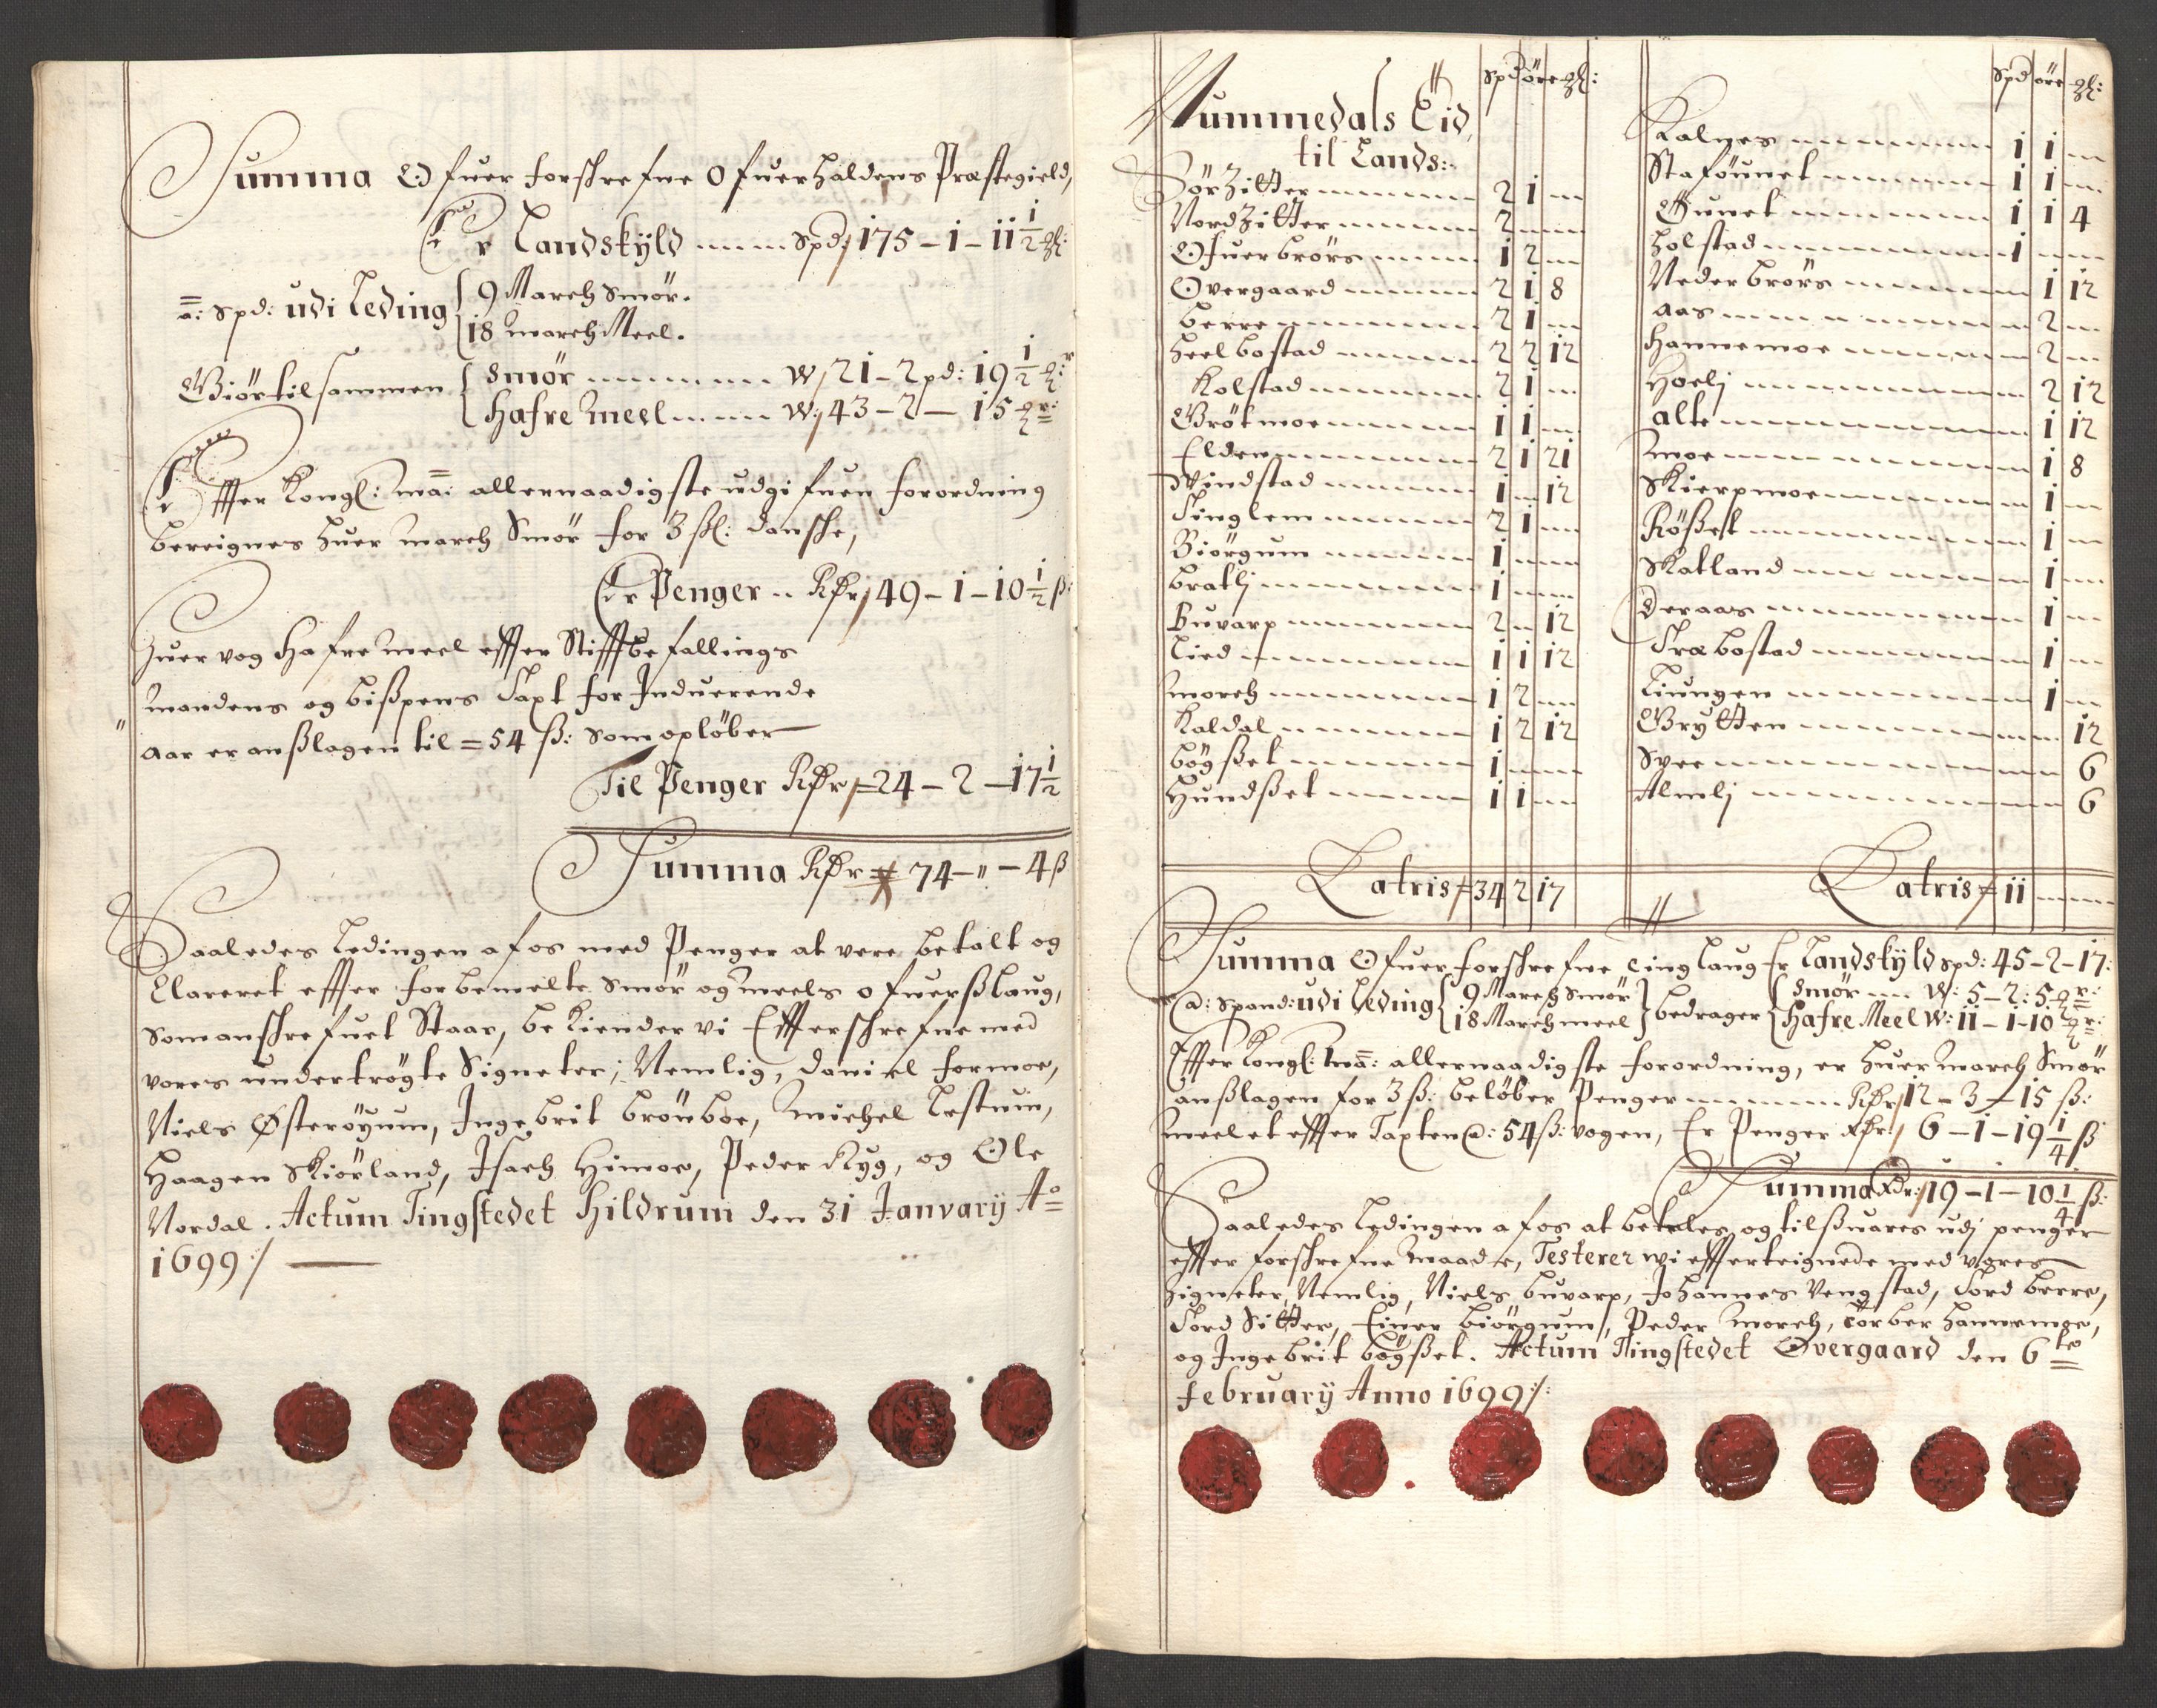 Summa Ofuer forschrefne Ofuerhaldens Præstegield,
Er Landskÿld ---- Spd: 175 - 1 - 11 1/2 ȝl:
a: Spd: udi Leding { 9 March Smör.
18 march Meel.
Giör tilsammen { Smör ------ W/ 21 - 2 pd: 19 1/2 ȝr
Hafre Meel ---- W: 43 - 2 - 15 ȝr:
Effter Kongl: Ma: allernaadigste udgifuen forordning
bereignes huer march Smör for 3 sl: danske,
Er Penger -- Rdr 49 - 1 - 10 1/2 ß:
Huer vog Hafre meel effter Stifftbefallings
mandens og bißpens Taxt for Induerende
aar er anßlagen til = 54 ß: som opløber
Til Penger Rdr = 24 - 2 - 17 1/2
Summa Rdr = 74 - " - 4 ß
Saaledes Ledingen af os med Penger at vere betalt og
Clareret effter forbemelte Smör og meels ofuerßlaug,
som anschrefuet Staar, bekiender vi Effterschrefne med
vores undertrögte Signeter; Nemlig, Daniel Formoe,
Niels Østeröyum, Ingebrit Bröuboe, Michel Lestum,
Haagen Skiörland, Isach Himoe, Peder Ryg, og Ole
Nordal. Actum Tingstedet Hildrum den 31 Janvarÿ Ao
1699 :/
Nummedals Eid
til Lands:
Spd öre ȝl:
SörZitter ---- 2 1 -
NordZitter ---- 2 - -
Ofuerbrörs ---- 1 2 -
Overgaard ---- 2 1 8
Berre ---- 2 1 -
Heelbostad ---- 2 2 12
Kolstad ---- 2 1 -
Grötmoe ---- 1 1 -
Elden ---- 2 1 21
Vindstad ---- 1 - 12
Tinglem ---- 2 1 -
Biörgum ---- 1 - -
Bratlj ---- 1 - -
Buvarp ---- 2 - 12
Lied ---- 1 1 12
Morch ---- 1 2 -
Kaldal ---- 1 2 12
Bögßet ---- 1 - -
Hundßet ---- 1 1 -
Latris = 34 2 17
Spd öre ȝl:
Kalnes ---- 1 1 -
Staföunet ---- 1 1 -
Dunet ---- 1 1 4
Holstad ---- 1 - -
Nederbrörs ---- 1 12
Aas ---- 2 -
Hannemoe ---- 2 -
Hoelj ---- 2 12
Alte ---- 1 12
Moe ---- 1 8
Skierpmoe ---- 1 -
Rößet ---- 1 -
Katland ---- 1 -
Deraas ---- 1 -
Træbostad ---- 1 -
Liungen ---- 1 -
Grytten ---- 12
Svee ---- 6
Almlj ---- 6
Latris = 11 - -
Summa Ofuer forschrefne Tinglaug Er Landskÿld spd: 45 - 2 - 17:
@: Spand: udi Leding { 9 March Smör
18 March meel } bedrager { Smör --- W: 5 - 2: 5 ȝr:
Hafre Meel W: 11 - 1 - 10 ȝr:
Effter Kongl: Ma: allernaadigste forordning, er huer March Smör
anßlagen for 3 ß: beløber Penger ------ Rdr 12 - 3 - 15 ß:
Meelet effter Taxten @: 54 ß: vogen, Er Penger Rdr: 6 - 1 - 19 1/4 ß
Summa Rdr: 19 - 1 - 10 1/4 ß:
Saaledes Ledingen af os at betales og tilßuares udj penger
effter forschrefne maade, Testerer wi effterteignede med vores
Zigneter, Nemlig, Niels Buvarp, Johannes Vengstad, Tord Berre,
Tord Sitter, Einer Biörgum, Peder Morch, Torber Hannemoe,
og Ingebrit Bögßet. Actum Tingstedet Overgaard den 6 to
Februarÿ Anno 1699 :/: